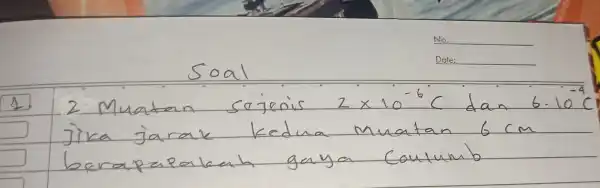 No.
Date:
Soal
1 2 Muatan sejenis 2 x 10⁻⁶ C dan 6.10⁻⁴ C
jika jarak kedua muatan 6 cm
berapapakah gaya Coulumb